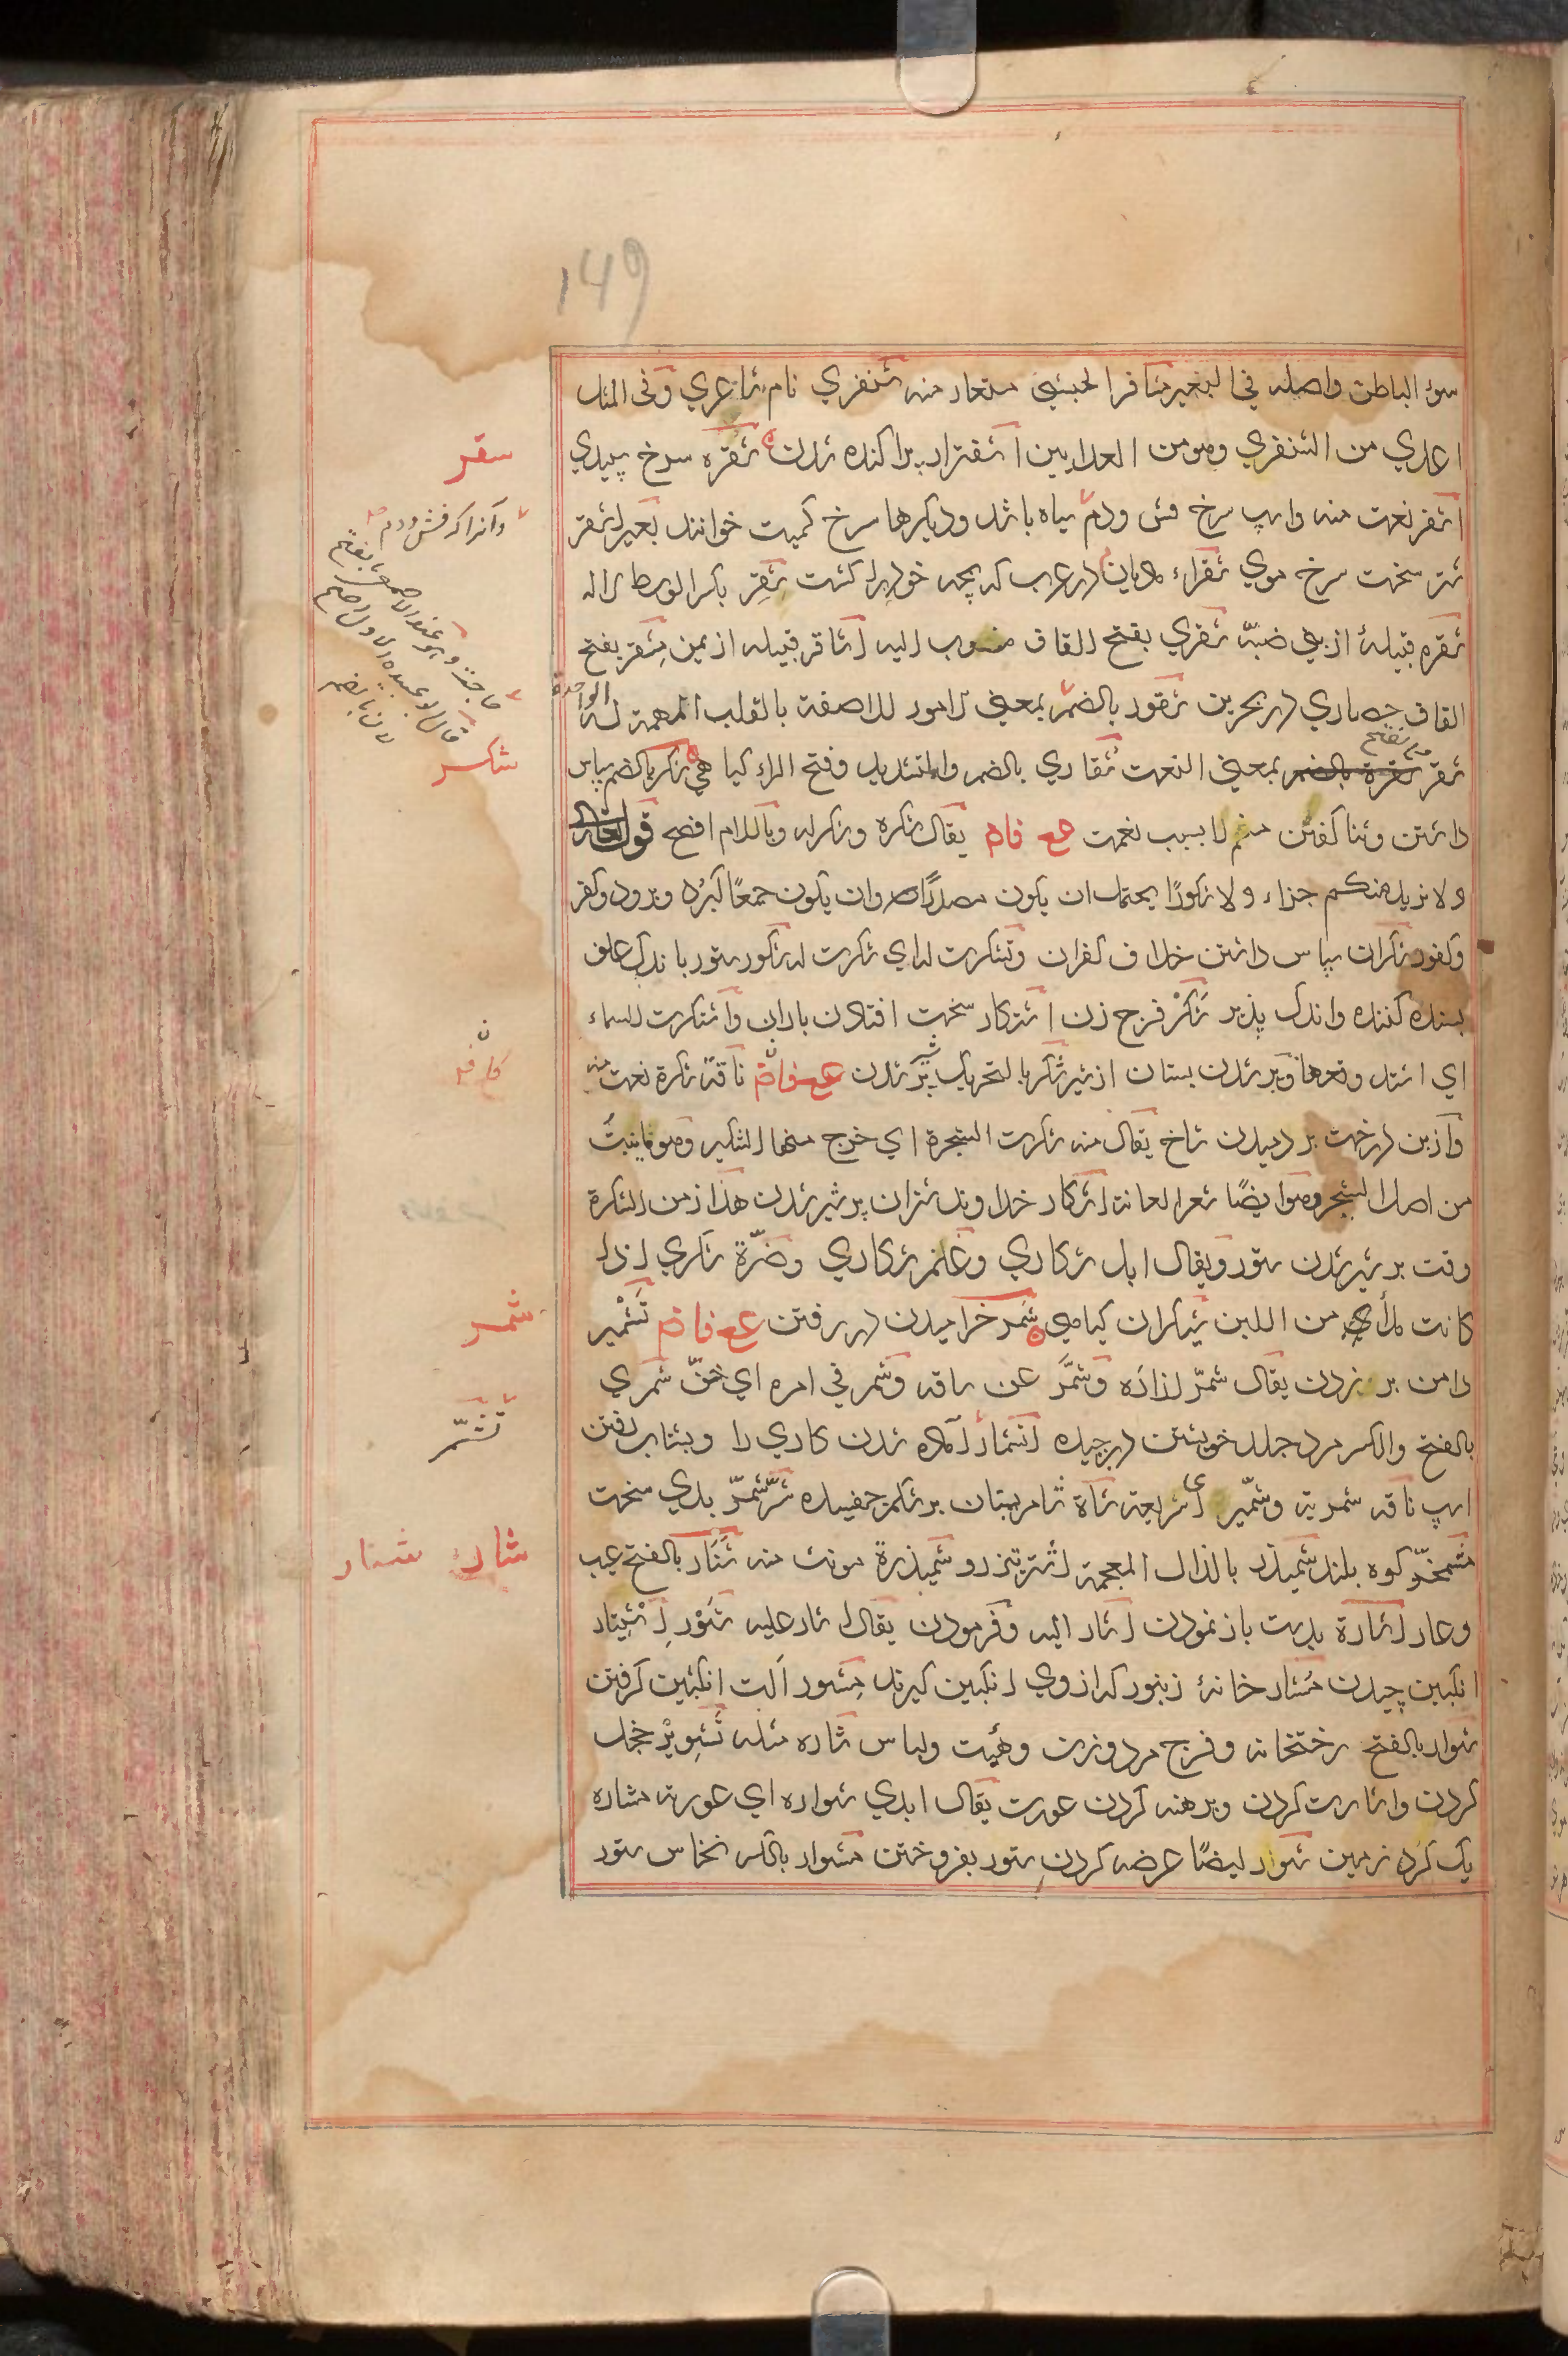 149
سوء الباطن واصله في البغير مشافر الحبشي مستعار منه شنفري نام شاعري وفى المثل
اعدي من الشنفري وهو من العدايين اشفترار پراکنده شدن شقره سرخ سپيدي
اشقر نعت منه واسپ سرخ فش ودم سياه باشد وديکرها سرخ کميت خوانند بعير اشقر
شتر سخت سرخ موي شقراء ماديان در عرب که بچه خود را کشت شقر بکسر الوسط لاله
شقره قبيلۀ از بني ضبّه شقري بفتح القاف منسوب اليه اشاقر قبيله از يمن مشقر بفتح
القاف حصاري در بحرين شقور بالضم بمعني الامور اللاصقة بالقلب المهمة له الواحدة
شقر شقرة بالضم بمعني النعت شقاري بالضم والتشديد وفتح الراء کيا هي شکر بالضم سپاس
داشتن وثنا کفتن منعم را بسبب نعمت مع فادم يقال شکره وشکر له وباللام افصح قوله تعالى
ولا نريد منكم جزاء ولا شکورًا يحتمل ان يکون مصدرًا وان يکون جمعًا کبرد وبرود وکفر
وکفور شکران سپاس داشتن خلاف کفران وتشکرت له اي شکرت له شکور ستور باندک علف
بسنده کننده واندک پذير شکر فرج زن اشتکار سخت افتادن باران واشتکرت السماء
اي اشتد وقعها وپر شدن پستان از شير شکر بالتحريک پر شدن مع فادم ناقة شکرة نعت منه
واز بن درخت بر دميدن شاخ يقال منه شکرت الشجرة اي خرج منها الشکير وهو ما ينبت
من اصل الشجر وهو ايضًا شعر العانة اشکار خداوند شتران پر شير شدن هذا زمن الشکرة
وقت پر شير شدن ستور ويقال ابل شکاري وغنم شکاري وضرّة شکري اذا
کانت ملأي من اللبن شيکران کياهي شمر خراميدن در رفتن مع فادم تشمير
دامن بر زدن يقال شمّر ازاره وشمّر عن ساقه وشمر في امره اي خفّ شمري
بالفتح والکسر مرد جلد خويشتن در چيده انشمار آماده شدن کاري را وبشتاب رفتن
اسپ ناقه شمرية وشمّير اي سريعة شاة شامر پستان بر شکم چفسيده شرّ شمرّ بدي سخت
مشمخرّ کوه بلند شميذر بالذال المعجمة اشتر تيزرو شميذرة مونث منه شنار بالفتح عيب
وعار اشارة بدست باز نمودن اشار اليه وفرمودن يقال اشار عليه شور اشتيار
انکبين چيدن مشار خانۀ زنبور که از وي انکبين کيرند مشور آلت انکبين کرفتن
شوار بالفتح رختخانه وفرج مرد وزن وهيئت ولباس شاره مثله تشوير خجل
کردن واشارت کردن وبرهنه کردن عورت يقال ابدي شواره اي عورته مشاره
يک کرد زمين شوار ايضًا عرضه کردن ستور بفروختن مشوار بالکسر نخاس ستور
سقر
وآنرا که فش ودم
شکر
شمر
تشمّر
شار شنار